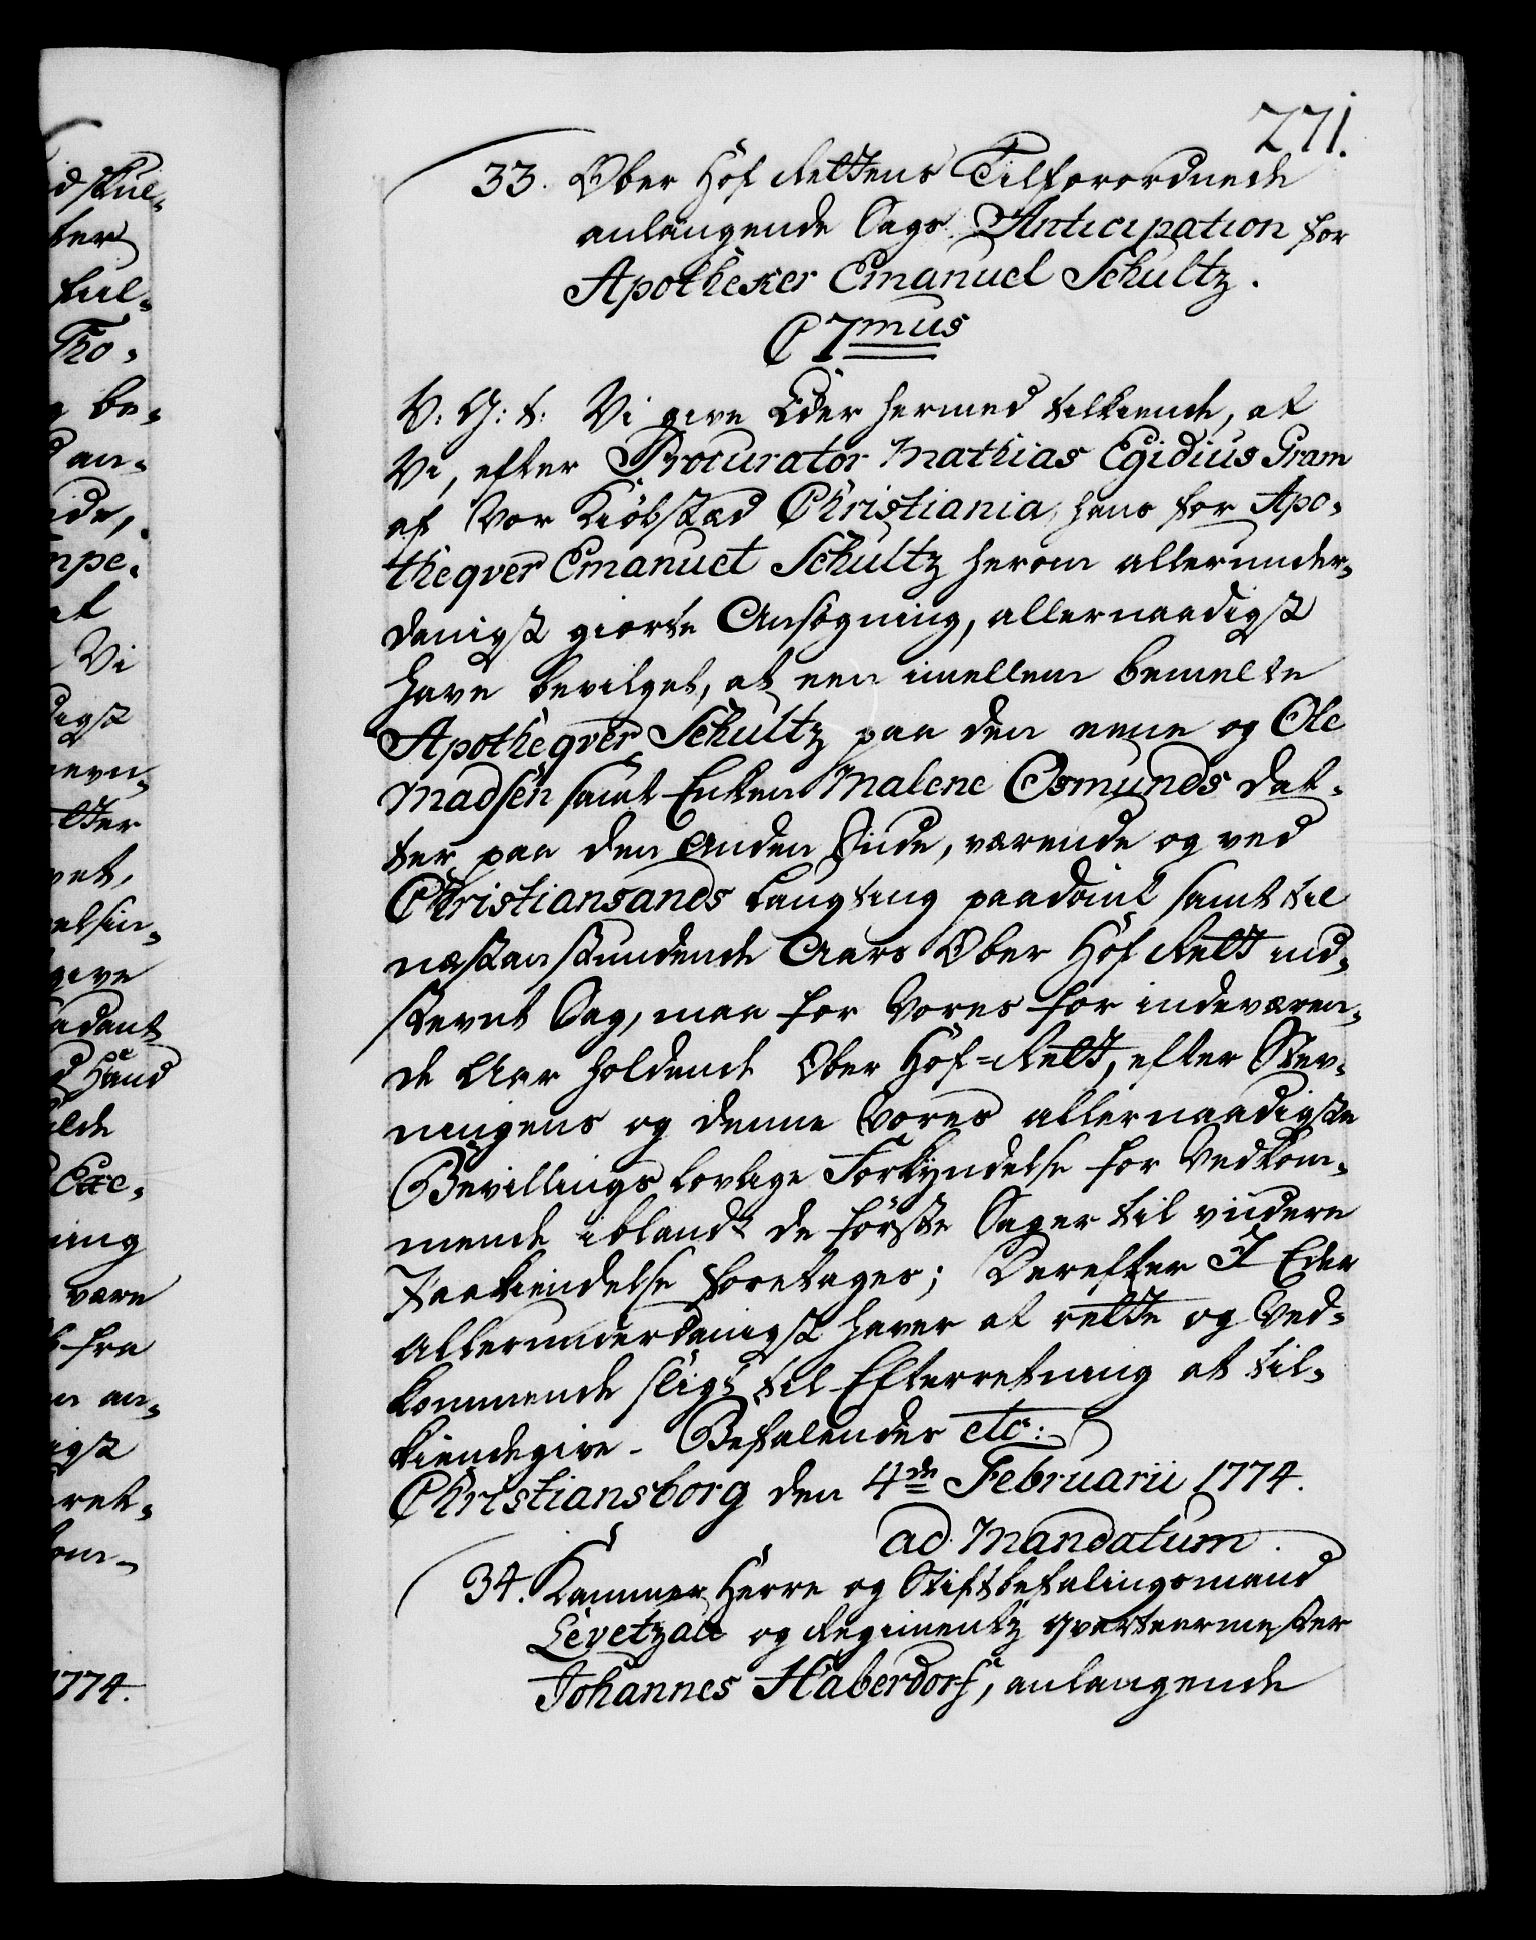 271.
33. Ober Hof Rettens Tilforordnede
anlangende Sags Anticipation for
Apotheker Emanuel Schultz.
C 7mus
V: G: t: Vi give Eder hermed tilkiende, at
Vi, efter Procurator Mathias Egidius Gram
af Vor Kiöbstæd Christiania, hans for Apo-
theqver Emanuel Schultz herom allerunder-
danigst giorte Ansøgning, allernaadigst
have bevilget, at een imellem bemelte
Apotheqver Schultz paa den eene og Ole
Madsen samt Enken Malene Osmunds dat-
ter paa den Anden Siide, værende og ved
Christiansands Laugting paadömt samt til
næstanstundende Aars Ober Hof Rett ind-
stevnt Sag, maa for Vores for indeværen-
de Aar holdende Ober Hof-Rett, efter Stev-
ningens og denne Vores allernaadigste
Bevillings lovlige Forkyndelse for Vedkom-
mende iblandt de förste Sager til viidere
Paakiendelse foretages; Derefter I Eder
allerunderdanigst haver at rette og Ved-
kommende sligt til Efterretning at til-
kiendegive. Befalendes etc:
Christiansborg den 4de Februarii 1774.
ad Mandatum.
34. Kammer Herre og Stiftbefalingsmand
Levetzau og Regimentz Qvarteermester
Johannes Haberdorf, anlangende